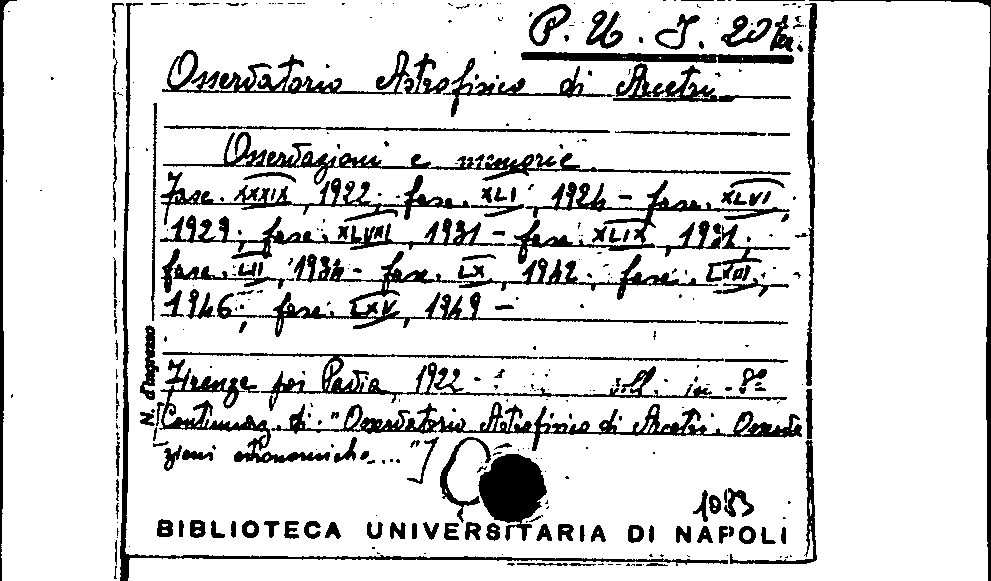 P. U. I. 20 ter.
Osservatorio Astrofisico di Arcetri
Osservazioni e memorie
Fasc. XXXIX, 1922; fasc. XLI, 1924 - fasc. XLVI,
1929; fasc. XLVIII, 1931 - fasc. XLIX, 1931;
fasc. LII, 1934 - fasc. LX, 1942; fasc. LXIII,
1946; fasc. LXV, 1949 -
Firenze poi Pavia, 1922 - voll. in -8°
[Continuaz. di: "Osservatorio Astrofisico di Arcetri. Osserva
zioni astronomiche...."]
N. d'ingresso
1083
BIBLIOTECA UNIVERSITARIA DI NAPOLI